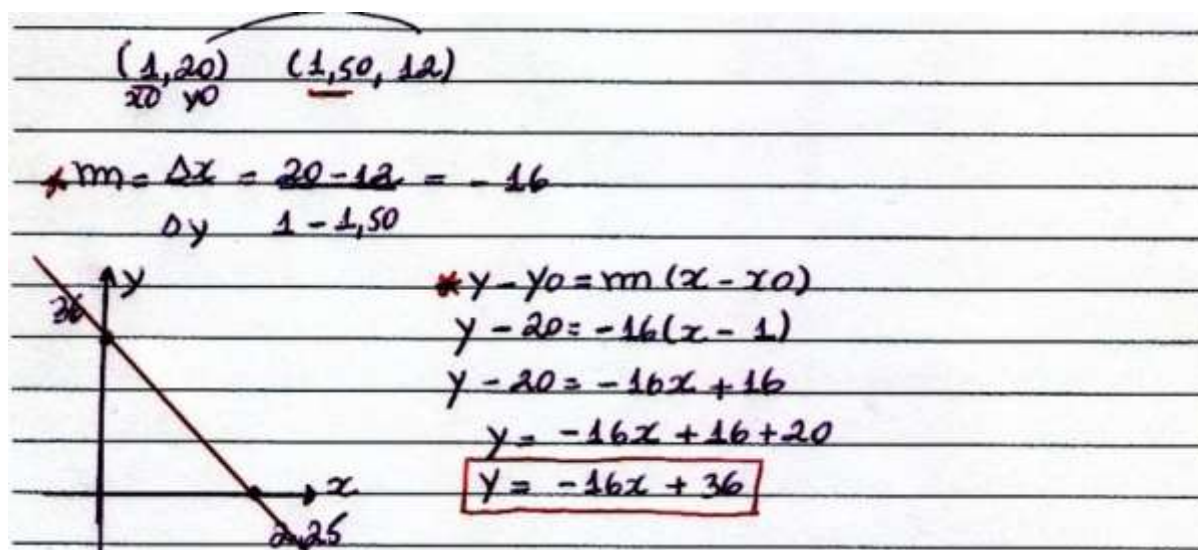 (1,20) (1,50, 12)
x0 y0
* m = Δx = 20-12 = -16
Δy 1-1,50
y
36
x
2,25
* y - y0 = m (x - x0)
y - 20 = -16(x - 1)
y - 20 = -16x + 16
y = -16x + 16 + 20
y = -16x + 36